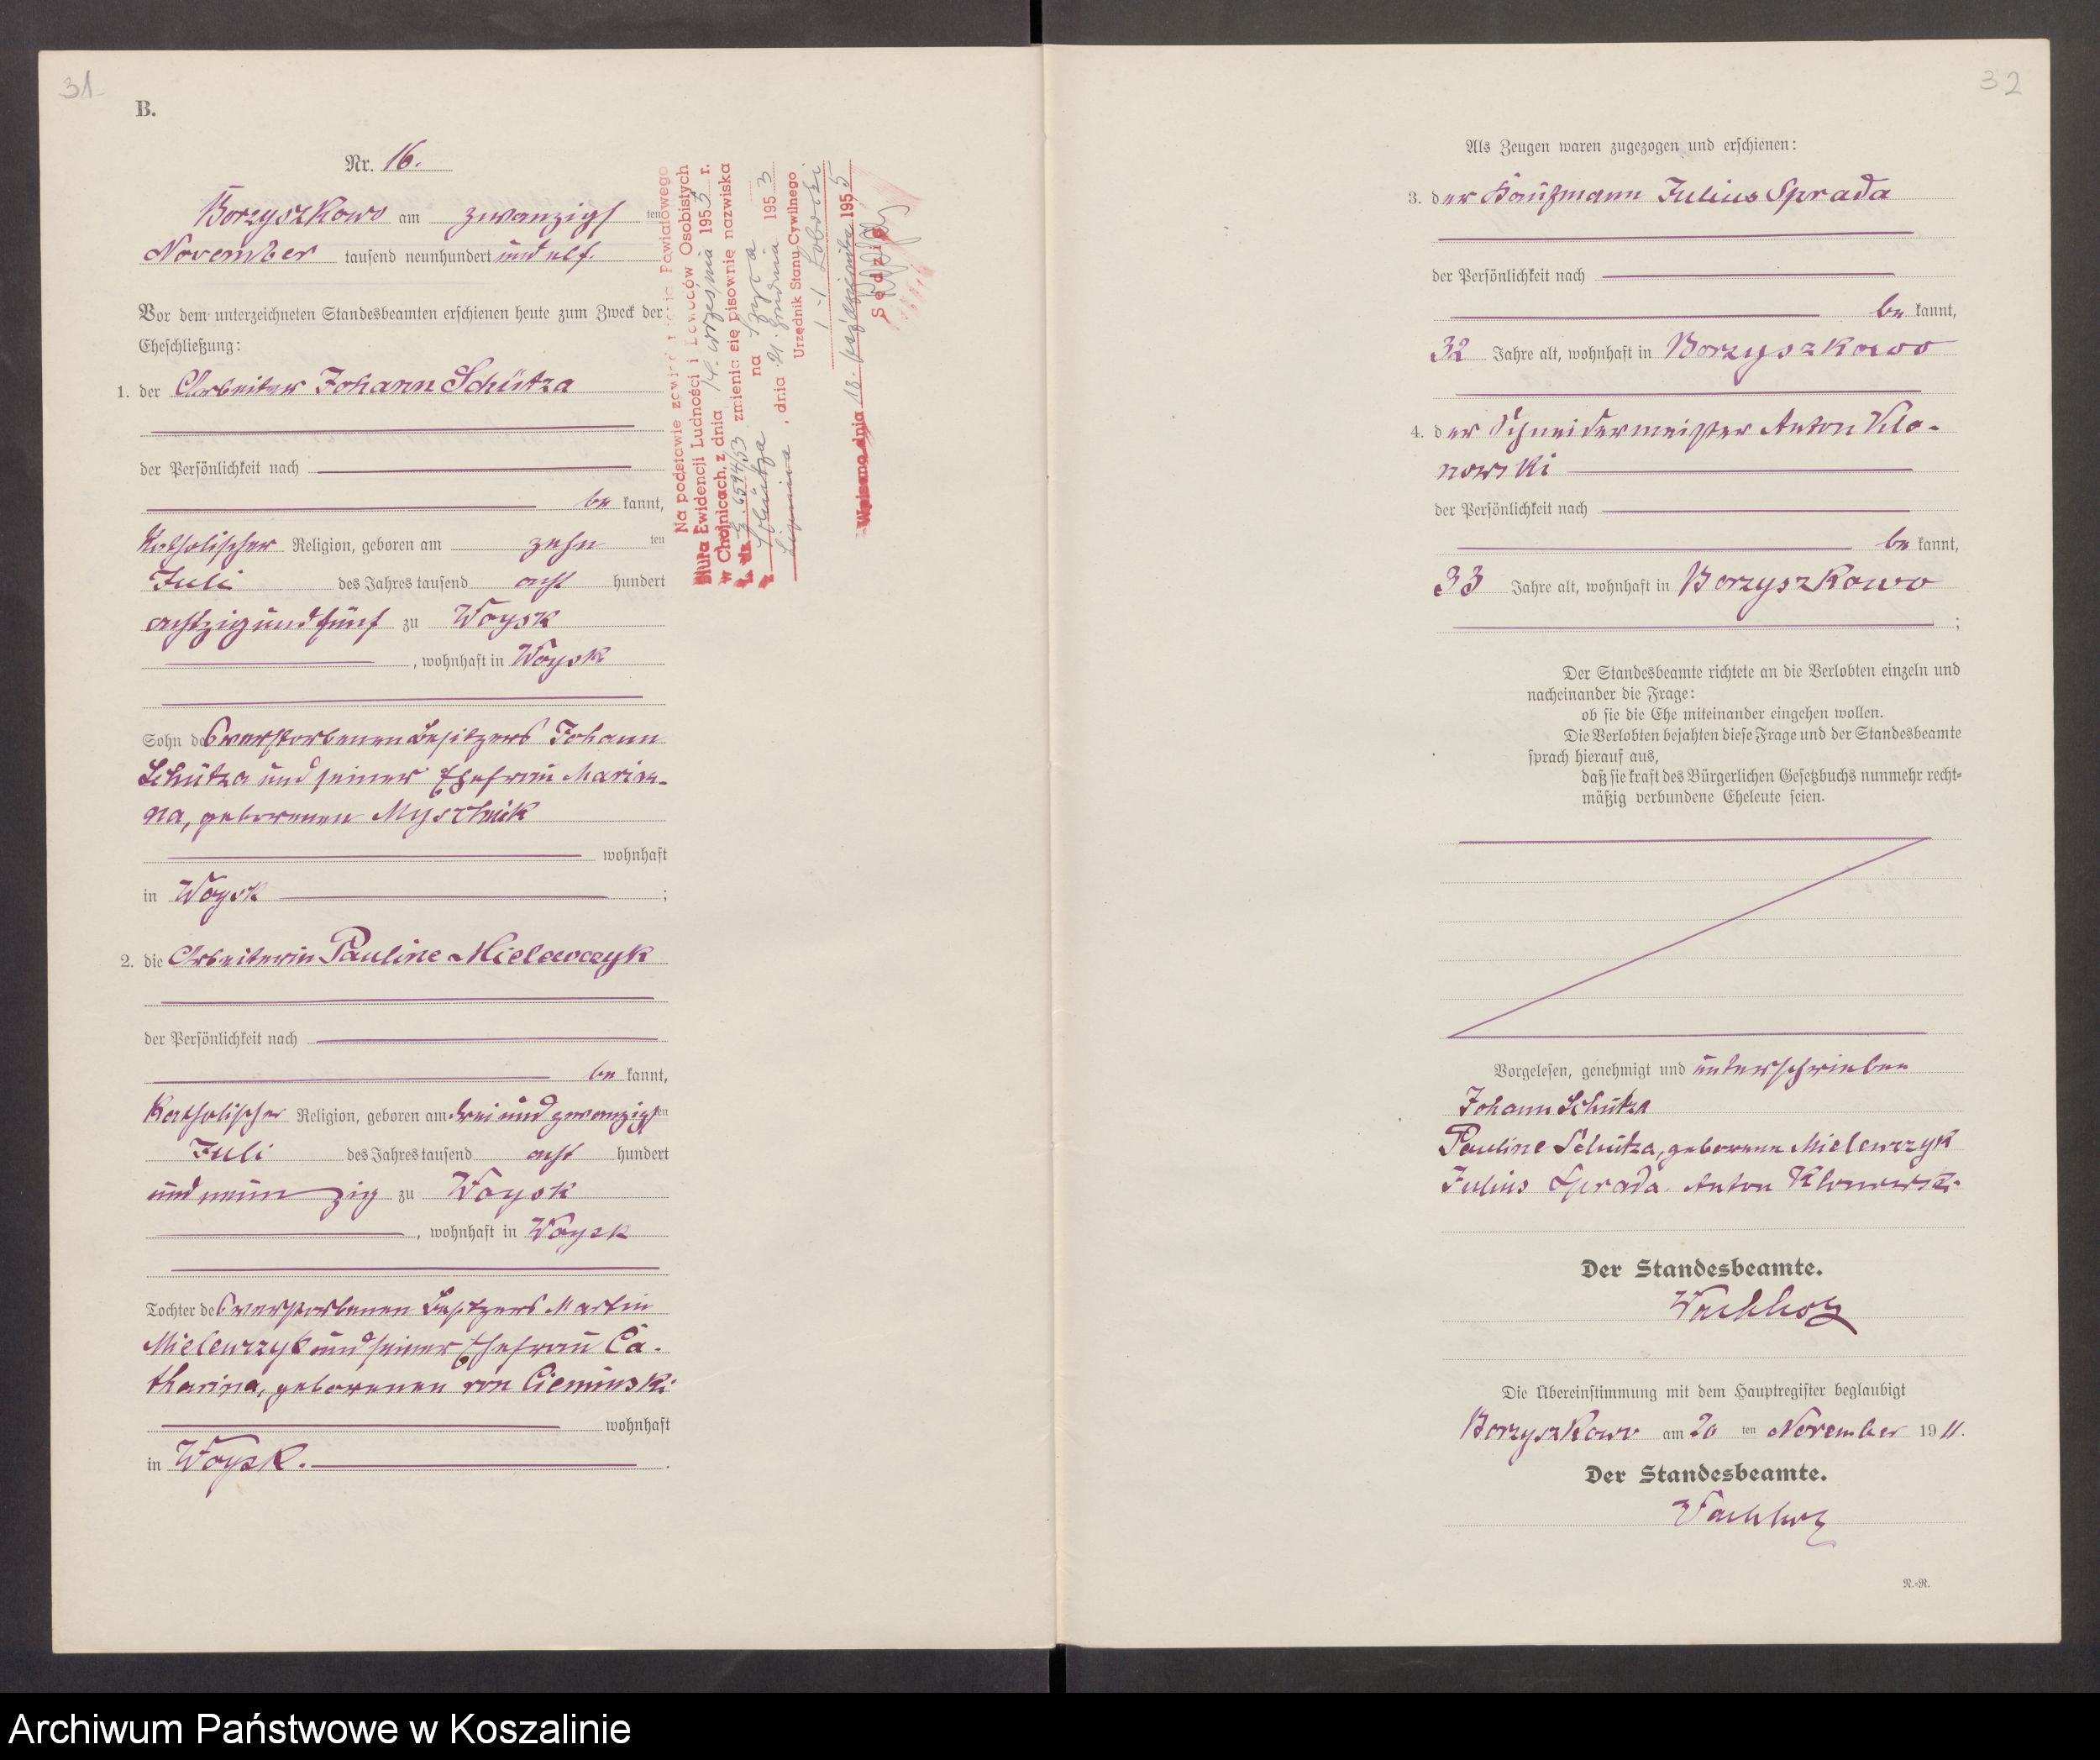 31
B.
Nr. 16.
Borzyszkowo am zwanzigsten
November tausend neunhundert und elf.
Vor dem unterzeichneten Standesbeamten erschienen heute zum Zweck der
Eheschließung:
1. der Arbeiter Johann Schütza
der Persönlichkeit nach
be kannt,
Katholischer Religion, geboren am zehn ten
Juli des Jahres tausend acht hundert
achtzig und fünf zu Woysk
, wohnhaft in Woysk
Sohn des verstorbenen Besitzers Johann
Schütza und seiner Ehefrau Marian-
na, geborenen
wohnhaft
in Woysk ;
2. die Arbeiterin Pauline Mielewczyk
der Persönlichkeit nach
be kannt,
Katholischer Religion, geboren am drei und zwanzigsten
Juli des Jahres tausend acht hundert
und neunzig zu Woysk
, wohnhaft in Woysk
Tochter des verstorbenen Besitzers Martin
Mielewczyk und seiner Ehefrau Ca-
tharina, geborenen von Cieminski
wohnhaft
in Woysk. .
Na podstawie Powiatowego
Biura Ewidencji Ludności i Dowodów Osobistych
w Chojnicach, z dnia 14. września 1953 r.
L. dz. zmienia się pisownię nazwiska
z Schütza na Szyca
Lipnica, dnia 21. grudnia 1953
Urzędnik Stanu Cywilnego
Wpisano dnia 18. października 1955
Sędzia
32
Als Zeugen waren zugezogen und erschienen:
3. der Kaufmann Julius Sprada
der Persönlichkeit nach
be kannt,
32 Jahre alt, wohnhaft in Borzyszkowo
4. der Schneidermeister Anton Klo-
nowski
der Persönlichkeit nach
be kannt,
33 Jahre alt, wohnhaft in Borzyszkowo
;
Der Standesbeamte richtete an die Verlobten einzeln und
nacheinander die Frage:
ob sie die Ehe miteinander eingehen wollen.
Die Verlobten bejahten diese Frage und der Standesbeamte
sprach hierauf aus,
daß sie kraft des Bürgerlichen Gesetzbuchs nunmehr recht-
mäßig verbundene Eheleute seien.
Vorgelesen, genehmigt und unterschrieben
Johann Schütza
Pauline Schütza, geborene Mielewczyk
Julius Sprada. Anton Klonowski.
Der Standesbeamte.
Wachholz
Die Übereinstimmung mit dem Hauptregister beglaubigt
Borzyszkowo am 20 ten November 1911.
Der Standesbeamte.
Wachholz
N.-R.
Archiwum Państwowe w Koszalinie